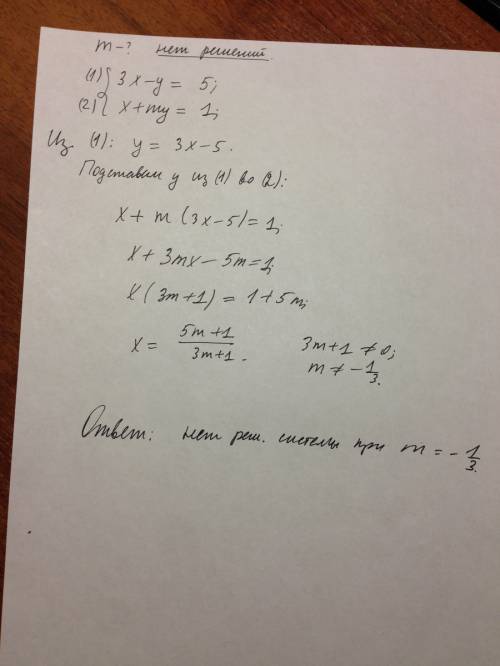 m-? нет решений.
(1) { 3x-y = 5;
(2) { x+my = 1;
Из (1): y = 3x-5.
Подставим y из (1) во (2):
x + m (3x-5)=1;
x + 3mx - 5m=1;
x (3m+1) = 1+5m;
x = (5m+1)/(3m+1). 3m+1 ≠ 0;
m ≠ -1/3.
Ответ: нет реш. системы при m = -1/3.